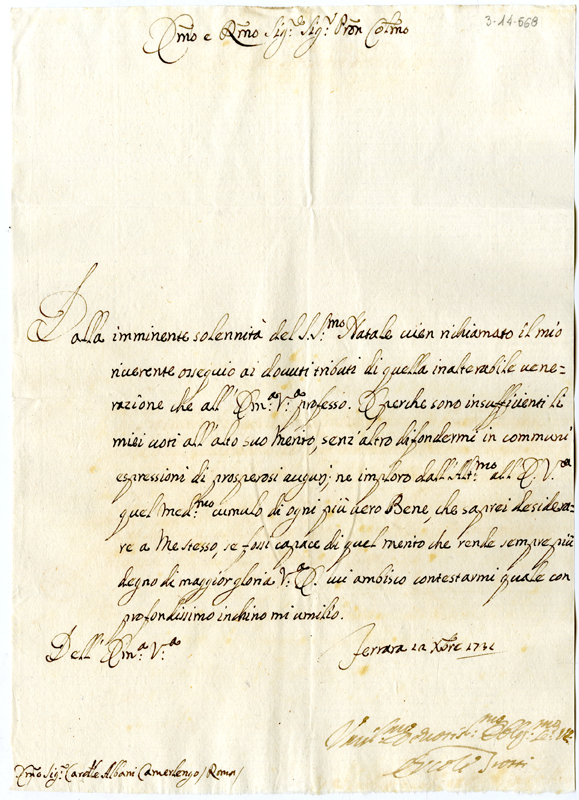 3-14-668
Em̃o e Rm̃o Sig.r Sig.r Pron Colmo
Dalla imminente solennità del S.S.mo Natale vien richiamato il mio
riverente ossequio ai dovuti tributi di quella inalterabile vene-
razione che all'Em.a V.a professo. E perche sono insufficienti li
miei voti all'alto suo Merito, senz'altro difondermi in communi
espressioni di prosperosi augurj; ne imploro dall'Alt.mo all'E. V.a
quel med.mo cumulo di ogni più vero Bene, che saprei desidera-
re a Me stesso, se fossi capace di quel merito che rende sempre più
degno di maggior gloria V.a E. cui ambisco contestarmi quale con
profondissimo inchino mi umilio.
Dell' Em.a V.a
Ferrara 12 Xbre 1731
Umil.mo Devot.mo Oblig.mo
Ercole
Em̃o Sig.r Card.le Albani Camerlengo / Roma /